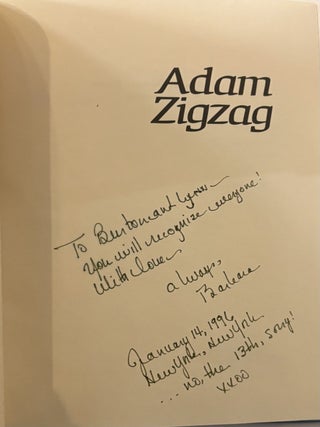 Adam
Zigzag
To and
You will recognize everyone!
With love
always,
Barbara
January 14, 1996
New York, New York
... no, the 13th, sorry!
xxoo